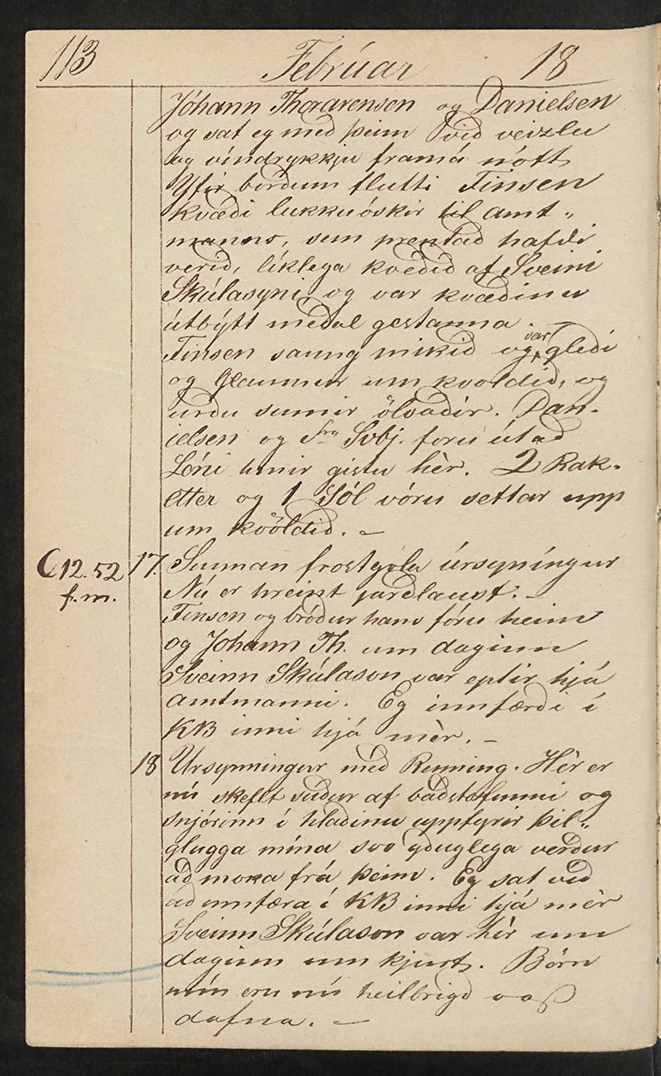 113 Februar 18
Jóhann Thorarensen og Danielsen
og sat eg með þeim við veizlu
og víndrykkju framá nótt
Yfir borðum flutti Finsen
kvæði lukkuóskir til amt„
manns, sem prentað hafði
verið, líklega kveðið af Sveini
Skúlasyni og var kvæðinu
útbýtt meðal gestanna. –
Finsen saung mikið og var gleði
og glaumur um kvöldið, og
urðu sumir ölvaðir. Dan-
ielsen og Sra Svbj. foru út að
Lóni hinir gistu hèr. 2 Rak-
etter og 1 Sól vóru settar upp
um kvöldið. –
12.52 17. Sunnan frostgola úrsyníngur
f.m. Nú er hreint jarðlaust. –
Finsen og bróður hans fóru heim
og Johann Th. um daginn
Sveinn Skúlason var eptir hjá
amtmanni. Eg innfærði í
KB inni hjá mèr. –
18 Ursynningur með Renning. Hèr er
nú skellt suður af baðstofunni og
snjórinn í hlaðinu uppfyrir þil„
glugga mína svo yðuglega verður
að moka frá þeim. Eg sat við
að innfæra í KB inni hjá mèr
Sveinn Skúlason var hèr um
daginn um kjurt. Börn
mín eru nú heilbrigð og
dafna. –